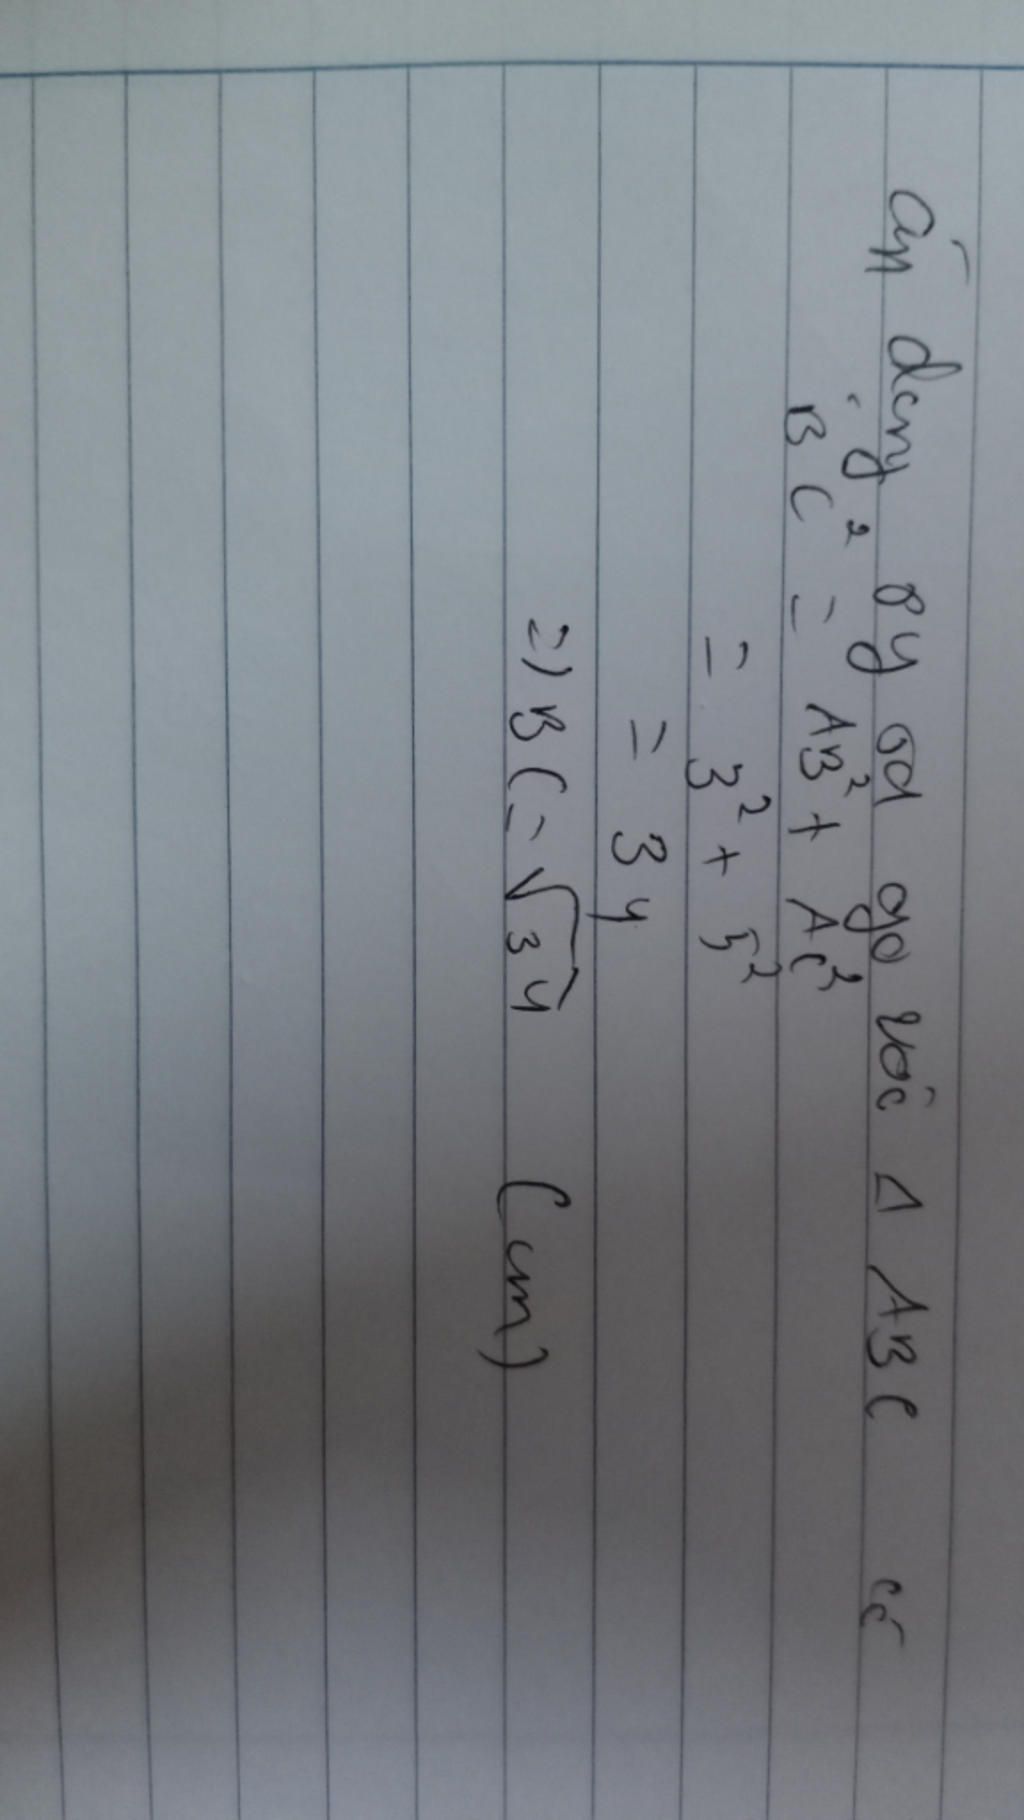 áp dụng py od go vào Δ ABC có
BC² = AB² + AC²
= 3² + 5²
= 34
=> BC = √34 (cm)